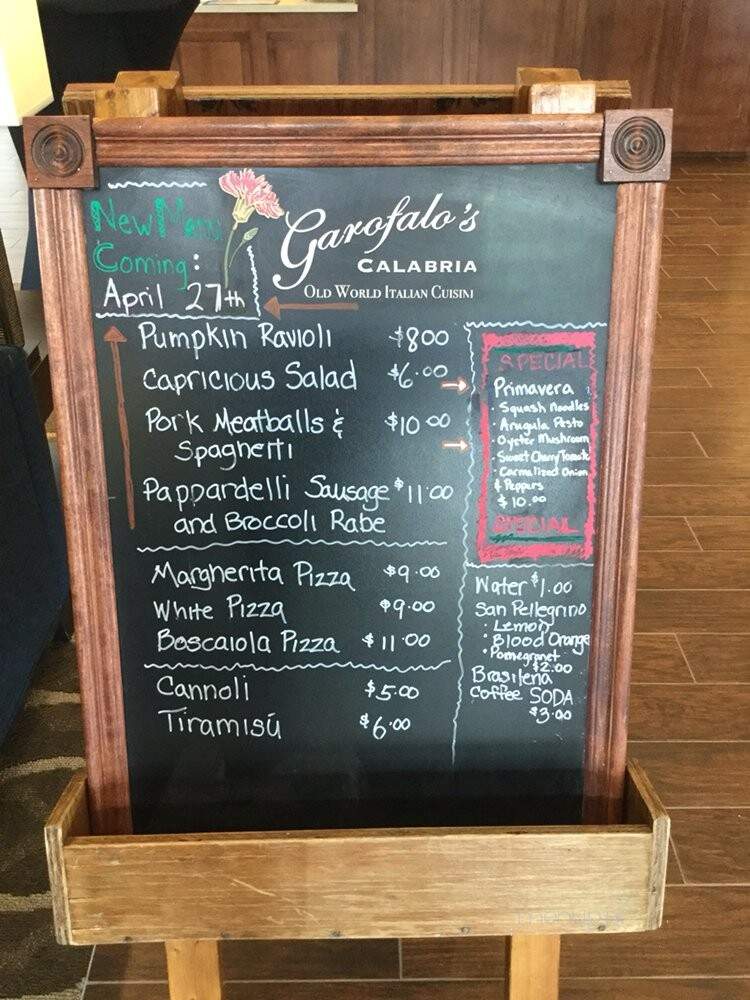 New Menu
Coming:
April 27th
Garofalo's
CALABRIA
OLD WORLD ITALIAN CUISINE
Pumpkin Ravioli $8.00
Capricious Salad $6.00
Pork Meatballs &
Spaghetti $10.00
Pappardelli Sausage $11.00
and Broccoli Rabe
Margherita Pizza $9.00
White Pizza $9.00
Boscaiola Pizza $11.00
Cannoli $5.00
Tiramisú $6.00
SPECIAL
Primavera
· Squash Noodles
· Arugula Pesto
· Oyster Mushroom
· Sweet Cherry Tomato
· Carmalized Onion
& Peppers
$10.00
SPECIAL
Water $1.00
San Pellegrino
· Lemon
· Blood Orange
· Pomegranet
$2.00
Brasilena
Coffee SODA
$3.00